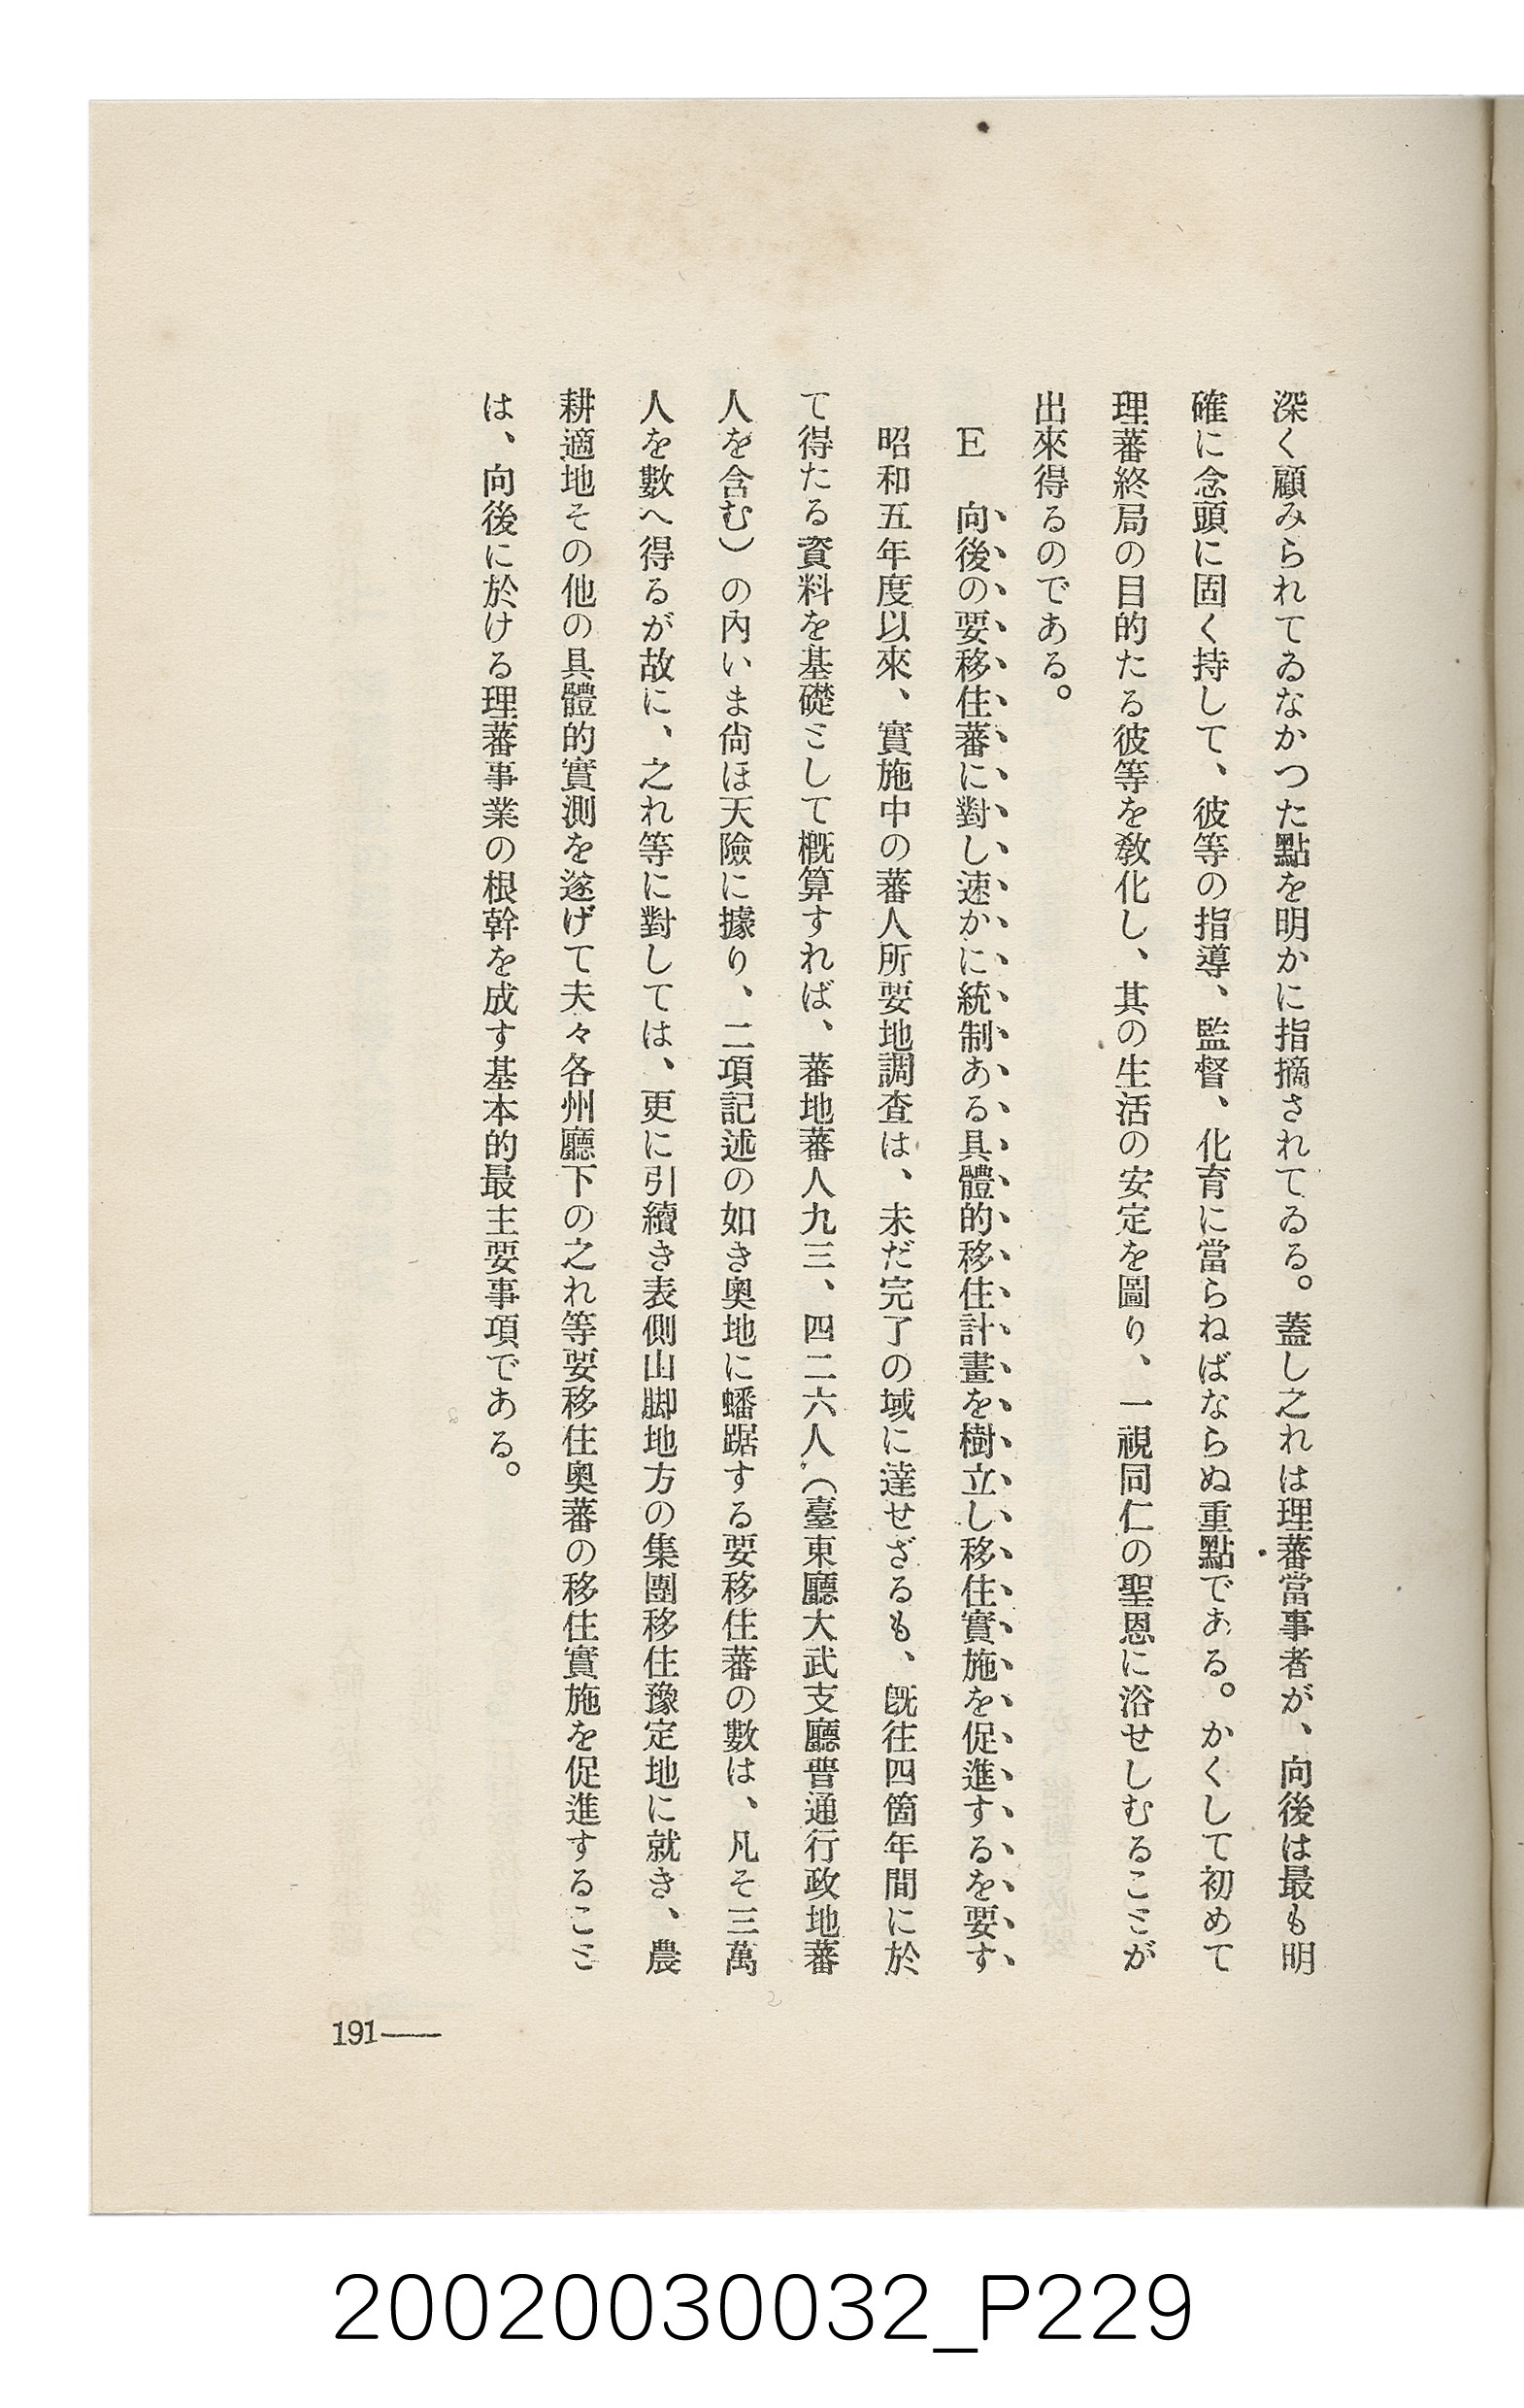 深く顧みられてゐなかつた點を明かに指摘されてゐる。蓋し之れは理蕃當事者が、向後は最も明
確に念頭に固く持して、彼等の指導、監督、化育に當らねばならぬ重點である。かくして初めて
理蕃終局の目的たる彼等を敎化し、其の生活の安定を圖り、一視同仁の聖恩に浴せしむるこࡄが
出來得るのである。
E　向後の要移住蕃に對し速かに統制ある具體的移住計畫を樹立し移住實施を促進するを要す
昭和五年度以來、實施中の蕃人所要地調査は、未だ完了の域に達せざるも、既往四箇年間に於
て得たる資料を基礎ミして概算すれば、蕃地蕃人九三、四二六人（臺東廳大武支廳普通行政地蕃
人を含む）の內いま尙ほ天險に據り、二項記述の如き奥地に蟠踞する要移住蕃の數は、凡そ三萬
人を數へ得るが故に、之れ等に對しては、更に引續き表側山脚地方の集團移住豫定地に就き、農
耕適地その他の具體的實測を遂げて夫々各州廳下の之れ等要移住奥蕃の移住實施を促進するこミ
は、向後に於ける理蕃事業の根幹を成す基本的最主要事項である。
191―
20020030032_P229